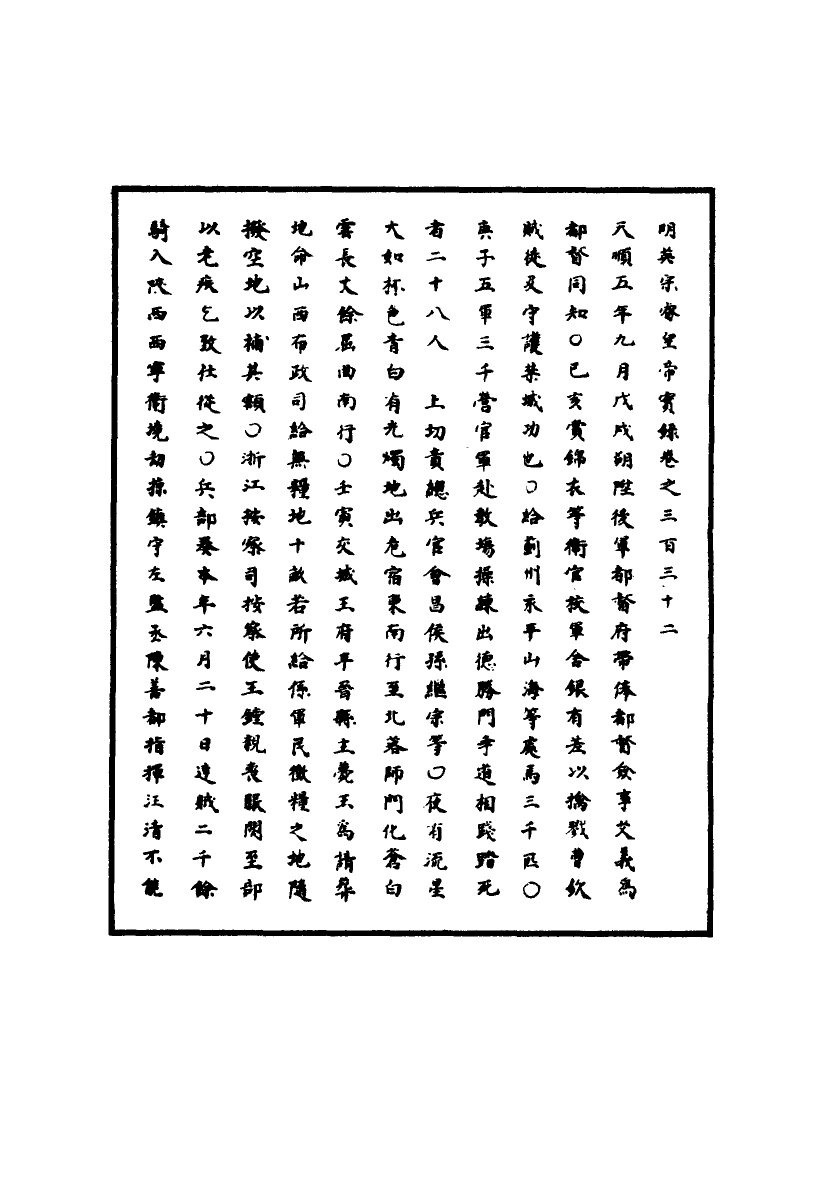 明英宗睿皇帝實錄卷之三百三十二
天順五年九月戊戌朔陞後軍都督府帶俸都督僉事艾義為
都督同知○己亥賞錦衣等衛官校軍舍銀有差以擒戮曹欽
賊徒及守護禁城功也○給薊州永平山海等處馬三千匹○
庚子五軍三千營官軍赴教場操練出德勝門爭道相踐踏死
者二十八人　上切責總兵官會昌侯孫繼宗等○夜有流星
大如杯色青白有光燭地出危宿東南行至北落師門化蒼白
雲長丈餘屈曲南行○壬寅交城王府平晉縣主薨王為請葬
地命山西布政司給無糧地十畝若所給係軍民徵糧之地隨
撥空地以補其額○浙江按察司按察使王鏜親喪服闋至部
以老疾乞致仕從之○兵部奏本年六月二十日達賊二千餘
騎入陝西西寧衛境劫掠鎮守左監丞陳善都指揮汪清不能